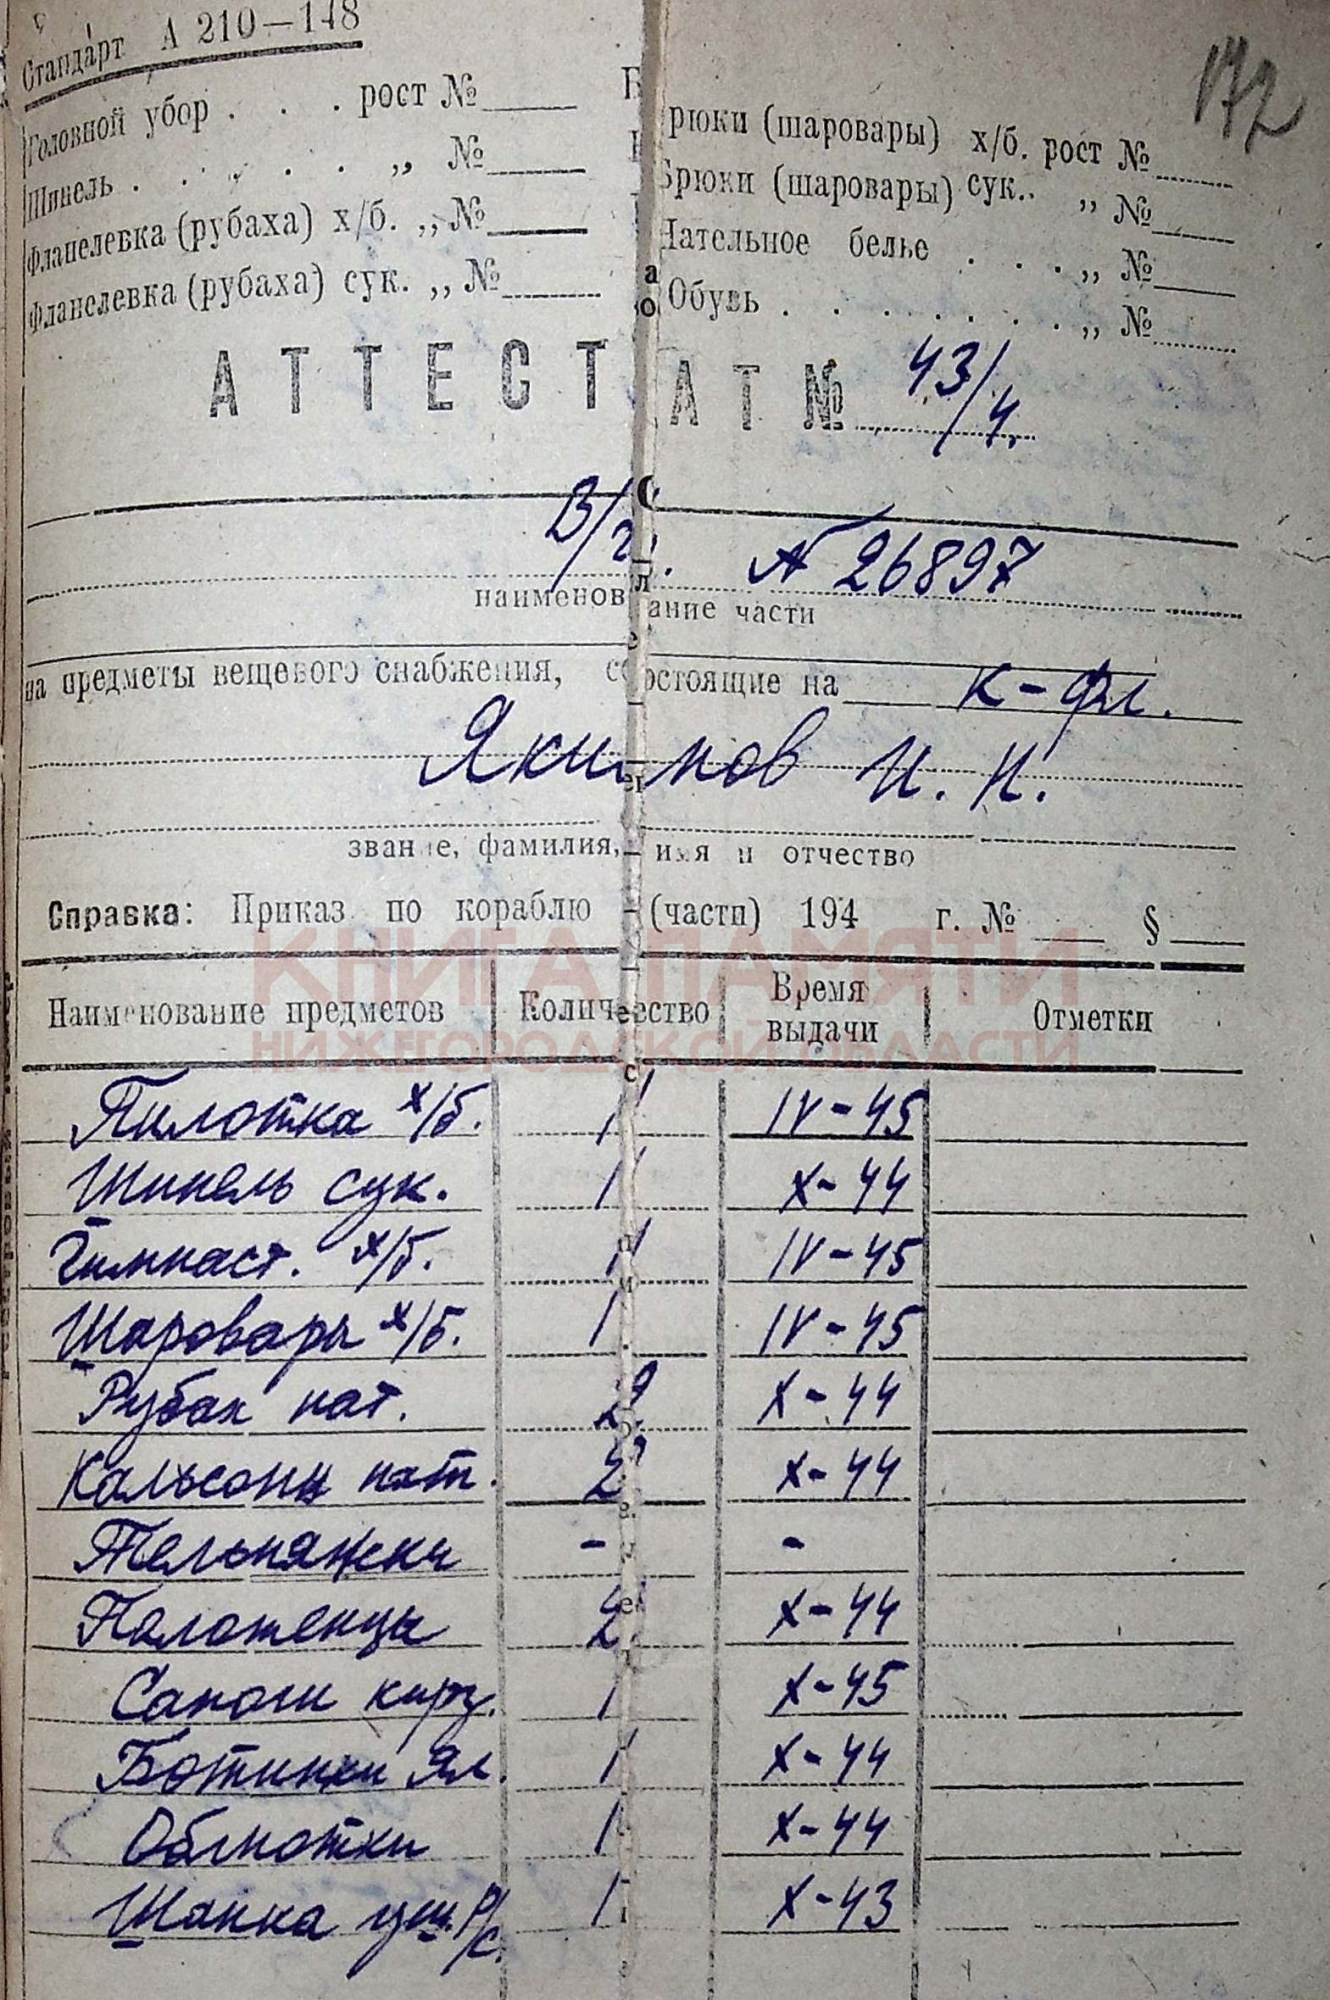 172
Стандарт А 210—148
Головной убор . . . рост №
Шинель . . . . . „ №
Фланелевка (рубаха) х/б. „ №
Фланелевка (рубаха) сук. „ №
Брюки (шаровары) х/б. рост №
Брюки (шаровары) сук.. „ №
Нательное белье . . . „ №
Обувь . . . . . . „ №
АТТЕСТАТ № 43/4.
В/ч. № 26897
наименование части
на предметы вещевого снабжения, состоящие на к-фл.
Якимов И. И.
звание, фамилия, имя и отчество
Справка: Приказ по кораблю (части) 194 г. № §
КНИГА ПАМЯТИ
НИЖЕГОРОДСКОЙ ОБЛАСТИ
Наименование предметов Количество Время выдачи Отметки
Пилотка х/б. 1 IV-45
Шинель сук. 1 X-44
Гимнаст. х/б. 1 IV-45
Шаровары х/б. 1 IV-45
Рубах нат. 2 X-44
Кальсоны нат. 2 X-44
Тельняжки - -
Полотенцы 2 X-44
Сапоги кирз. 1 X-45
Ботинки ял. 1 X-44
Обмотки 1 X-44
Шапка уш. Р/с. 1 X-43